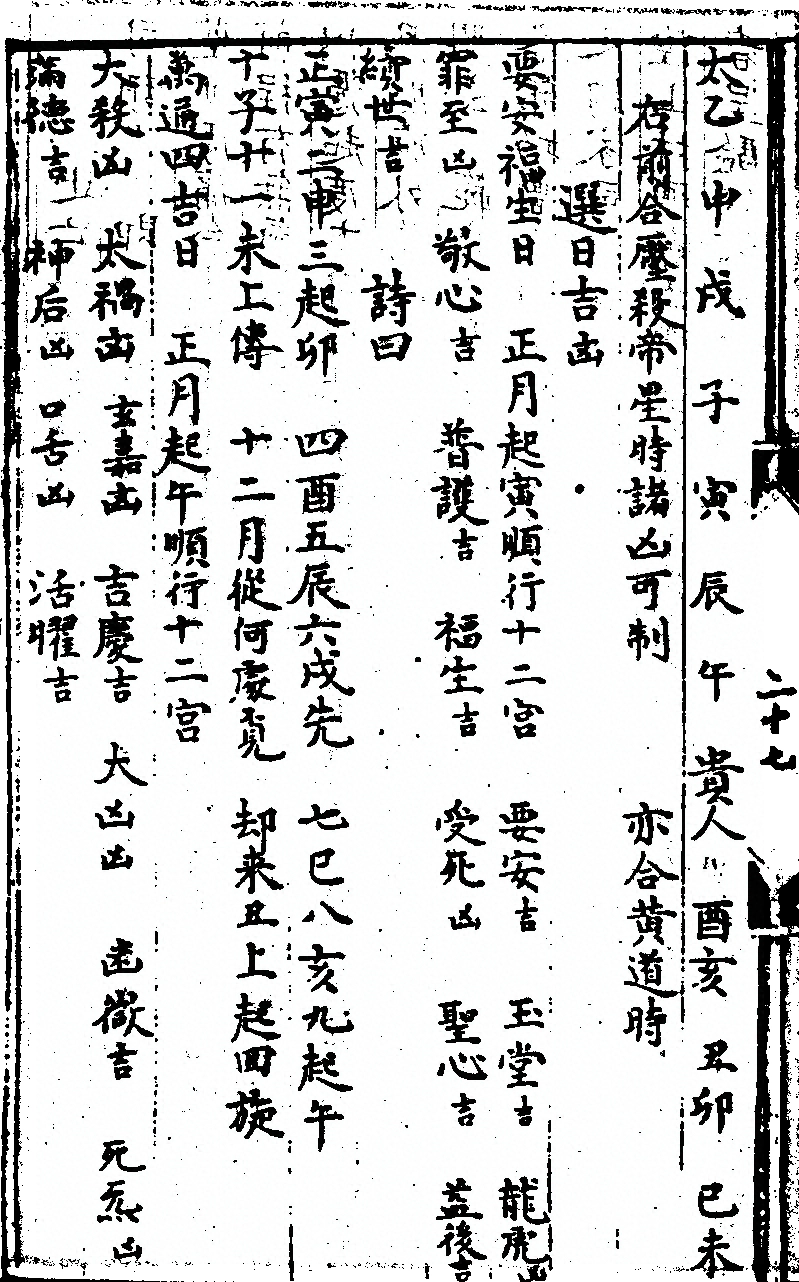 二十七
太乙 申 戌 子 寅 辰 午 貴人 酉亥 丑卯 巳未
右前合壓殺帝星時諸凶可制 亦合黄道時
選日吉凶
要安福生日 正月起寅順行十二宮 要安吉 玉堂吉 龍虎凶
罪至凶 敬心吉 普護吉 福生吉 受死凶 聖心吉 益後吉
續世吉 詩曰
正寅二申三起卯 四酉五辰六戌先 七巳八亥九起午
十子十一未上傳 十二月從何處覓 却来丑上起回旋
萬通四吉日 正月起午順行十二宮
大殺凶 太禍凶 玄嘉凶 吉慶吉 大凶凶 幽微吉 死炁凶
滿德吉 神后凶 口舌凶 活曜吉